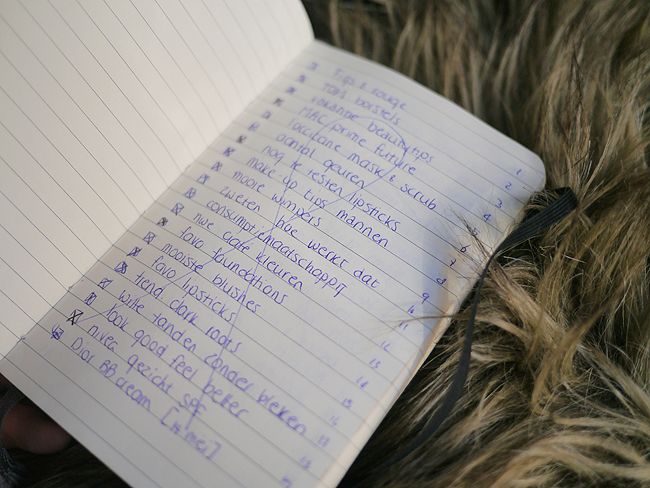 Tips & rouge
Tools borstels
vakantie beautytips
MAC prime future
l'occitane mask & scrub
aantal geuren
nog te testen lipsticks
make up tips mannen
mooie wimpers
zweten hoe werkt dat
consumptiemaatschappij
nwe ciate kleuren
favo foundations
mooiste blushes
favo lipsticks
trend dark roots
witte tanden zonder bleken
look good feel better
nivea gezicht SPF
Dior BB cream [14 mei]
1
2
3
4
6
7
8
9
10
11
12
13
14
15
16
17
18